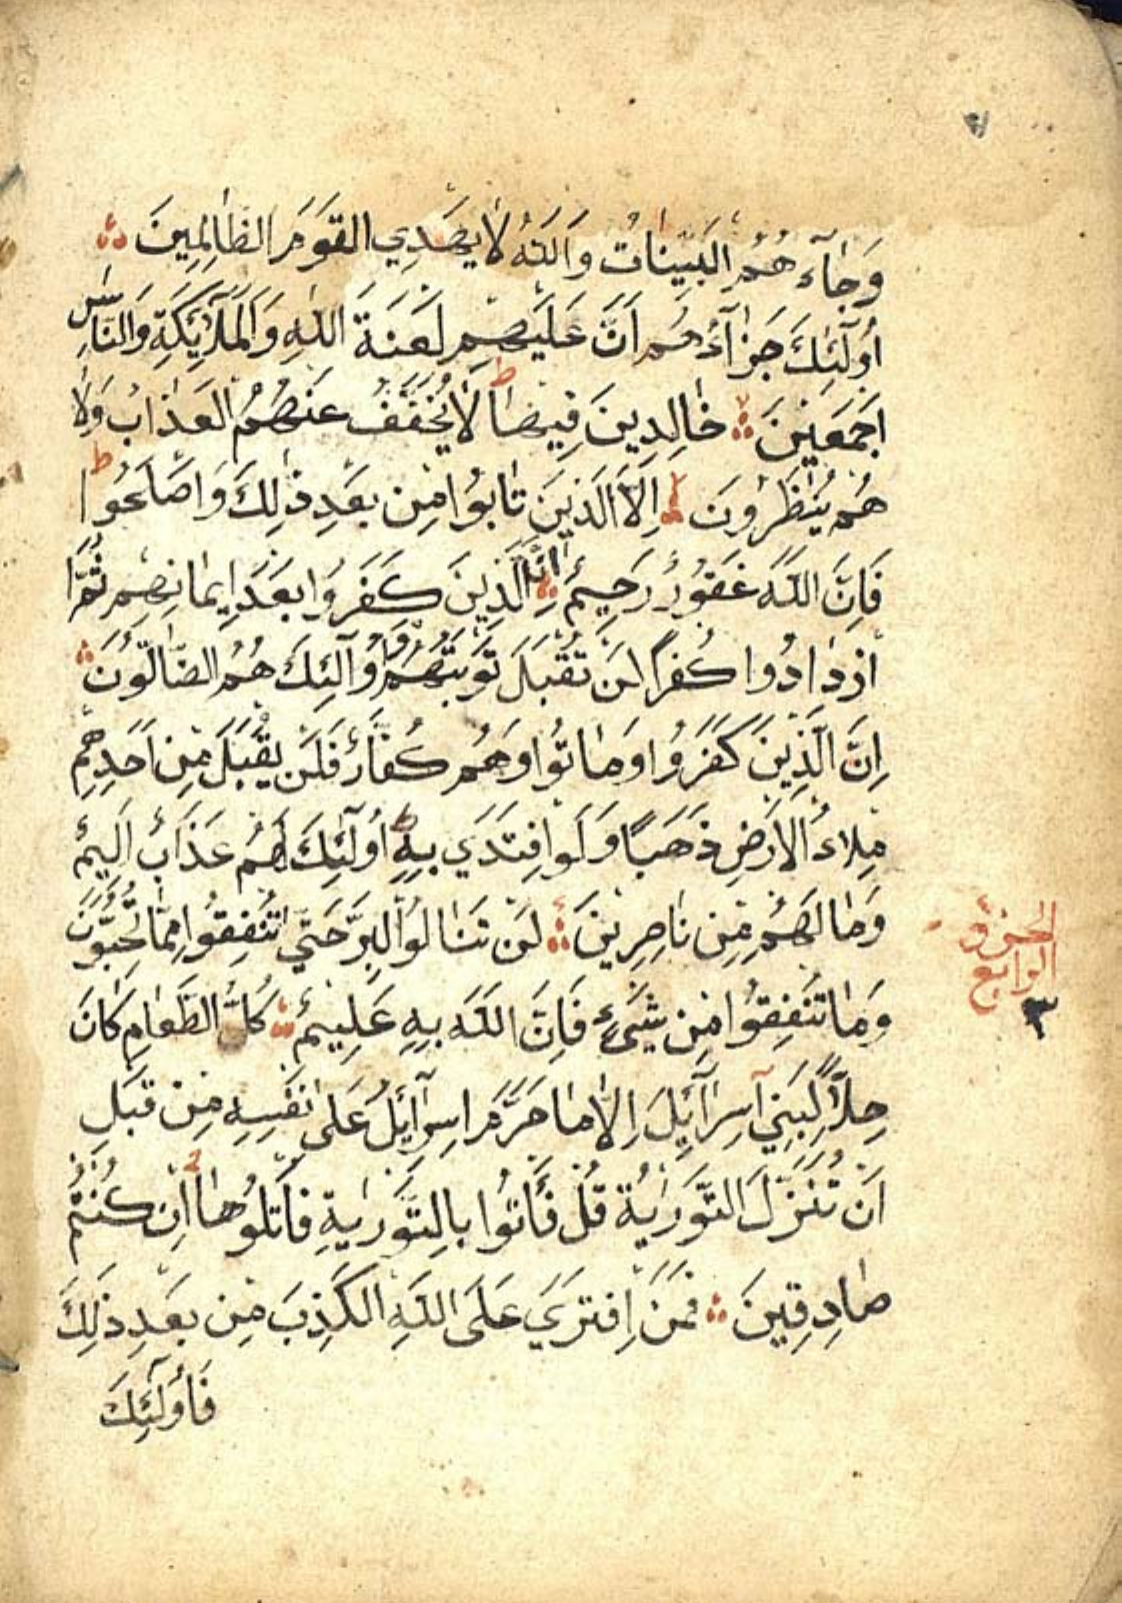 وَجَاءَهُمُ الْبَيِّنَاتُ وَاللّٰهُ لَا يَهْدِي الْقَوْمَ الظَّالِمِينَ
أُولَٓئِكَ جَزَٓاؤُهُمْ اَنَّ عَلَيْهِمْ لَعْنَةَ اللّٰهِ وَالْمَلَٓائِكَةِ وَالنَّاسِ
اَجْمَعِينَ خَالِدِينَ فِيهَا ط لَا يُخَفَّفُ عَنْهُمُ الْعَذَابُ وَلَا
هُمْ يُنْظَرُونَ اِلَّا الَّذِينَ تَابُوا مِنْ بَعْدِ ذٰلِكَ وَاَصْلَحُوا ط
فَاِنَّ اللّٰهَ غَفُورٌ رَحِيمٌ اِنَّ الَّذِينَ كَفَرُوا بَعْدَ اِيمَانِهِمْ ثُمَّ
ازْدَادُوا كُفْرًا لَنْ تُقْبَلَ تَوْبَتُهُمْ وَاُولَٓئِكَ هُمُ الضَّالُّونَ
اِنَّ الَّذِينَ كَفَرُوا وَمَاتُوا وَهُمْ كُفَّارٌ فَلَنْ يُقْبَلَ مِنْ اَحَدِهِمْ
مِلْاءُ الْاَرْضِ ذَهَبًا وَلَوِ افْتَدَي بِهِ ط اُولَٓئِكَ لَهُمْ عَذَابٌ اَلِيمٌ
وَمَا لَهُمْ مِنْ نَاصِرِينَ لَنْ تَنَالُوا الْبِرَّ حَتَّي تُنْفِقُوا مِمَّا تُحِبُّونَ
وَمَا تُنْفِقُوا مِنْ شَيْءٍ فَاِنَّ اللّٰهَ بِهِ عَلِيمٌ كُلُّ الطَّعَامِ كَانَ
حِلًّا لِبَنِي اِسْرَٓائِلَ اِلَّا مَا حَرَّمَ اِسْرَٓائِلُ عَلَى نَفْسِهِ مِنْ قَبْلِ
اَنْ تُنَزَّلَ التَّوْرٰيةُ قُلْ فَأْتُوا بِالتَّوْرٰيةِ فَاتْلُوهَا اِنْ كُنْتُمْ
صَادِقِينَ فَمَنِ افْتَرَي عَلَى اللّٰهِ الْكَذِبَ مِنْ بَعْدِ ذٰلِكَ
فَاُولَٓئِكَ
الجزؤ
الرابع